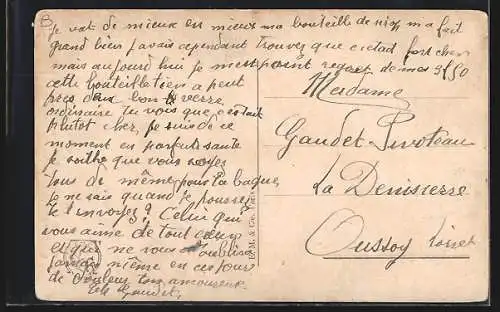 je vat de mieux en mieux ma bouteille de ma fait
grand bien j'avais cependant trouvez que cetad fort cher
mais aujourd'hui je m'est point regret de mes 3f50
cette bouteille tien a peut
pres deux bon verre
ordinaire tu vois que cetait
plutot cher, je suis de ce
moment en parfaite sante
je soithe que vous soyez
tous de même pour la bague
je ne sais quand je pourrez
te l'envoyez? Celui qui
vous aime de tout cœur
et que ne vous oublira
jamais même en ces jours
de douleur ton amoureux
Gaudet
Madame
Gaudet Pivoteau
La Denisterre
Oussoy Loiret